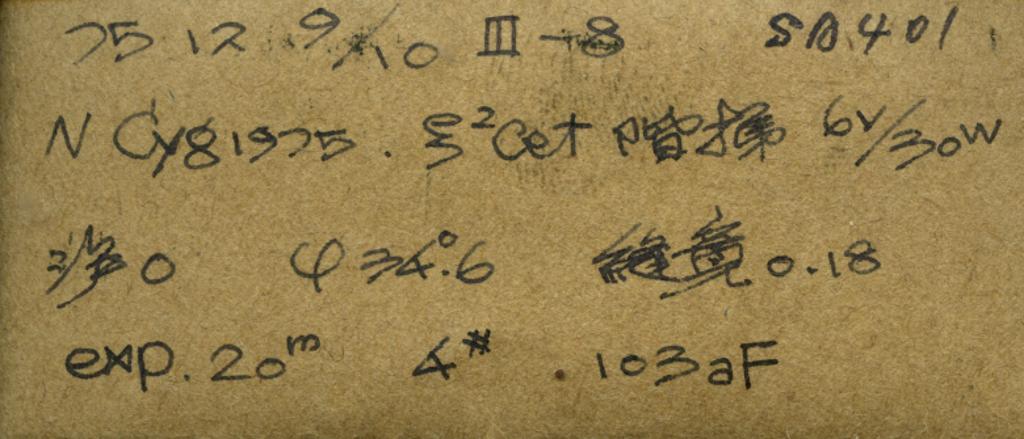 75 12 9/10 III-8 SA401
N Cyg 1975. ξ²Cet 階梯 6V/30W
浄0 φ34°.6 縫寛0.18
exp. 20m 4# . 103aF